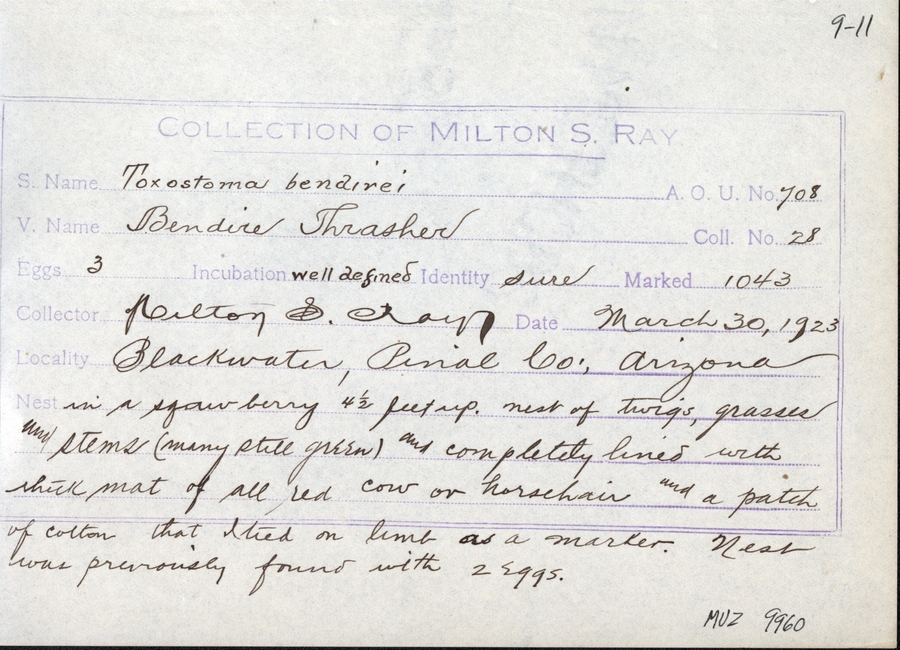 9-11
COLLECTION OF MILTON S. RAY
S. Name Toxostoma bendirei A. O. U. No. 708
V. Name Bendire Thrasher Coll. No. 28
Eggs 3 Incubation well defined Identity sure Marked 1043
Collector Milton S. Ray Date March 30, 1923
Locality Blackwater, Pinal Co., Arizona
Nest in a squawberry 4½ feet up. nest of twigs, grasses
and stems (many still green) and completely lined with
thick mat of all red cow or horsehair and a patch
of cotton that I tied on limb as a marker. Nest
was previously found with 2 eggs.
MVZ 9960